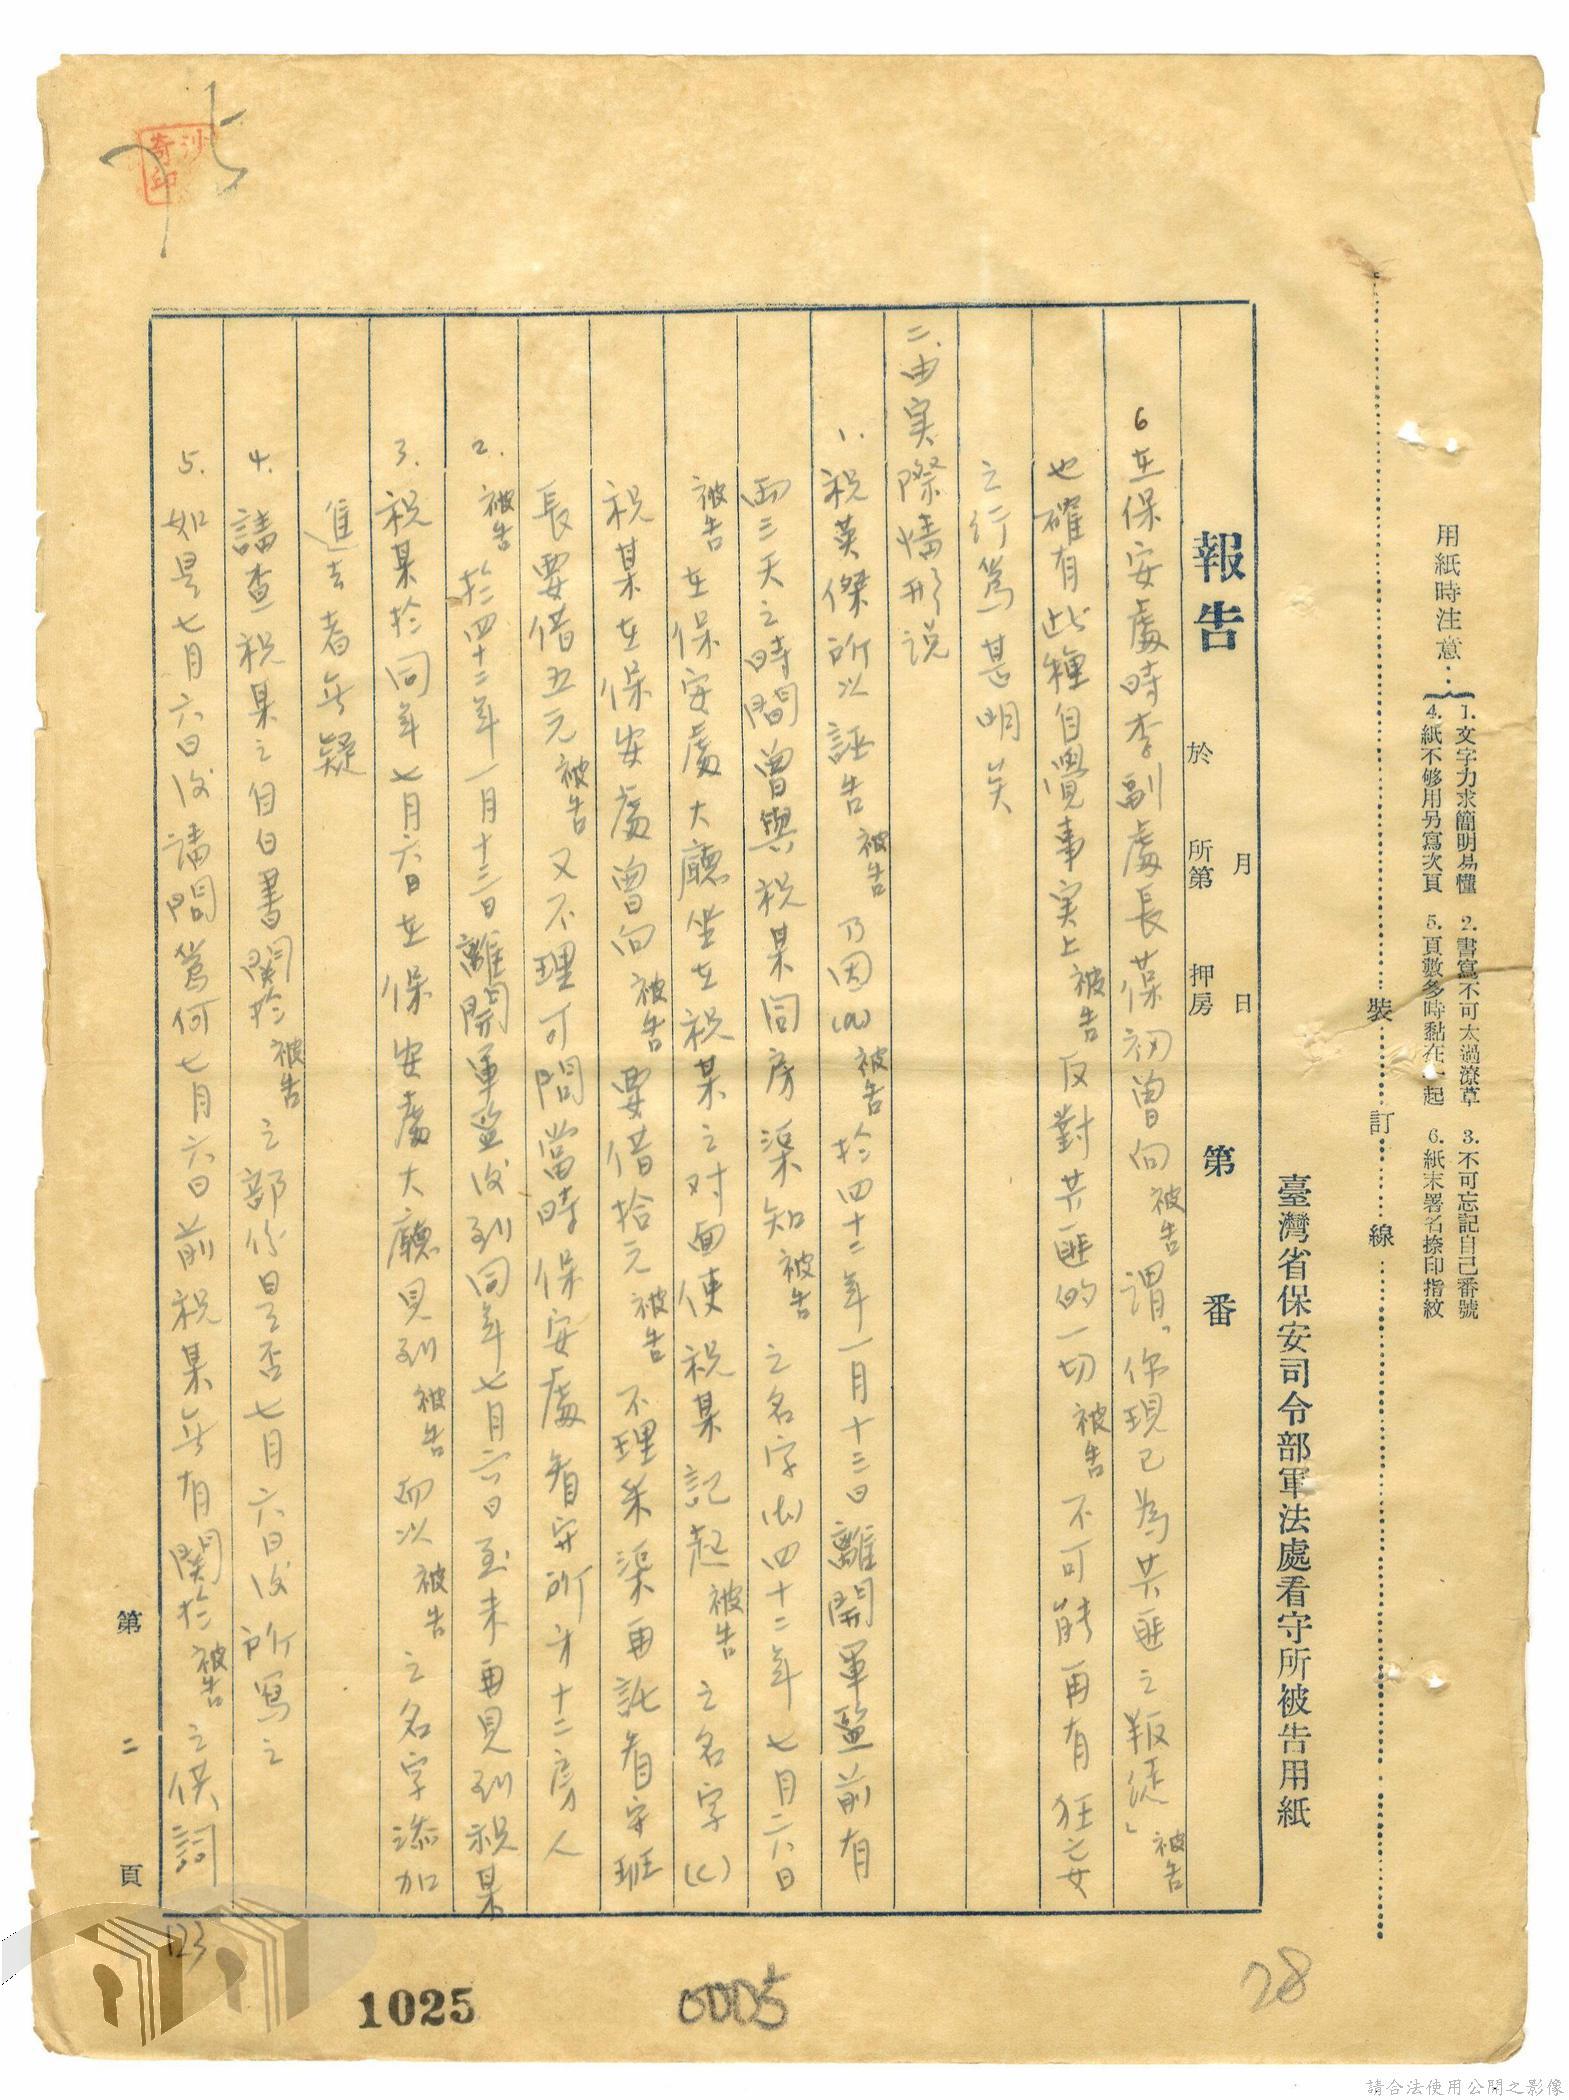 用紙時注意：
1. 文字力求簡明易懂 2. 書寫不可太過潦草 3. 不可忘記自己番號
4. 紙不够用另寫次頁 5. 頁數多時黏在一起 6. 紙末署名捺印指紋
裝 訂 線
臺灣省保安司令部軍法處看守所被告用紙
報告 於 月 日 所第 押房 第 番
6 在保安處時李副處長葆初曾向被告謂「你現已為共匪之叛徒」被告
也確有此種自覺事实上被告反對共匪的一切被告不可能再有狂妄
之行為甚明矣
二.由実際情形说
1. 祝英傑所以誣告被告乃因(a)被告於四十二年一月十三日離開軍監前有
両三天之時間曾與祝某同房渠知被告之名字(b)四十二年七月六日
被告在保安處大廳坐在祝某之対面使祝某記起被告之名字(c)
祝某在保安處曾向被告要借拾元被告不理采渠再託看守班
長要借五元被告又不理可問當時保安處看守所才十二房人
2. 被告於四十二年一月十三日離開軍監後到同年七月六日並未再見到祝某
3. 祝某於同年七月六日在保安處大廳見到被告而以被告之名字添加
進去者無疑
4. 請查祝某之自白書関於被告之部份是否七月六日後所寫之
5. 如是七月六日後請問為何七月六日前祝某無有関於被告之供詞
第 二 頁
123
1025
0005
28
沙奇印
請合法使用公開之影像